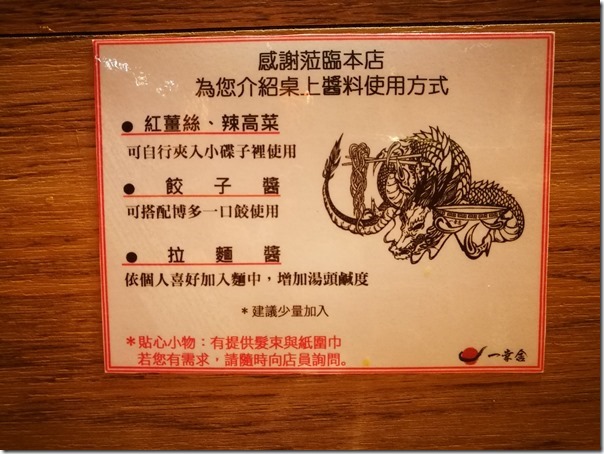 感謝蒞臨本店
為您介紹桌上醬料使用方式
● 紅薑絲、辣高菜
可自行夾入小碟子裡使用
● 餃子醬
可搭配博多一口餃使用
● 拉麵醬
依個人喜好加入麵中，增加湯頭鹹度
*建議少量加入
*貼心小物：有提供髮束與紙圍巾
若您有需求，請隨時向店員詢問。
一幸舍